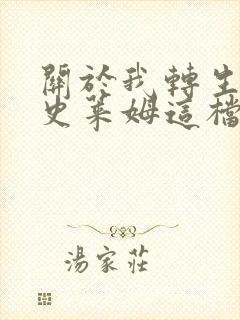 關於我轉生
史萊姆這檔
湯家莊